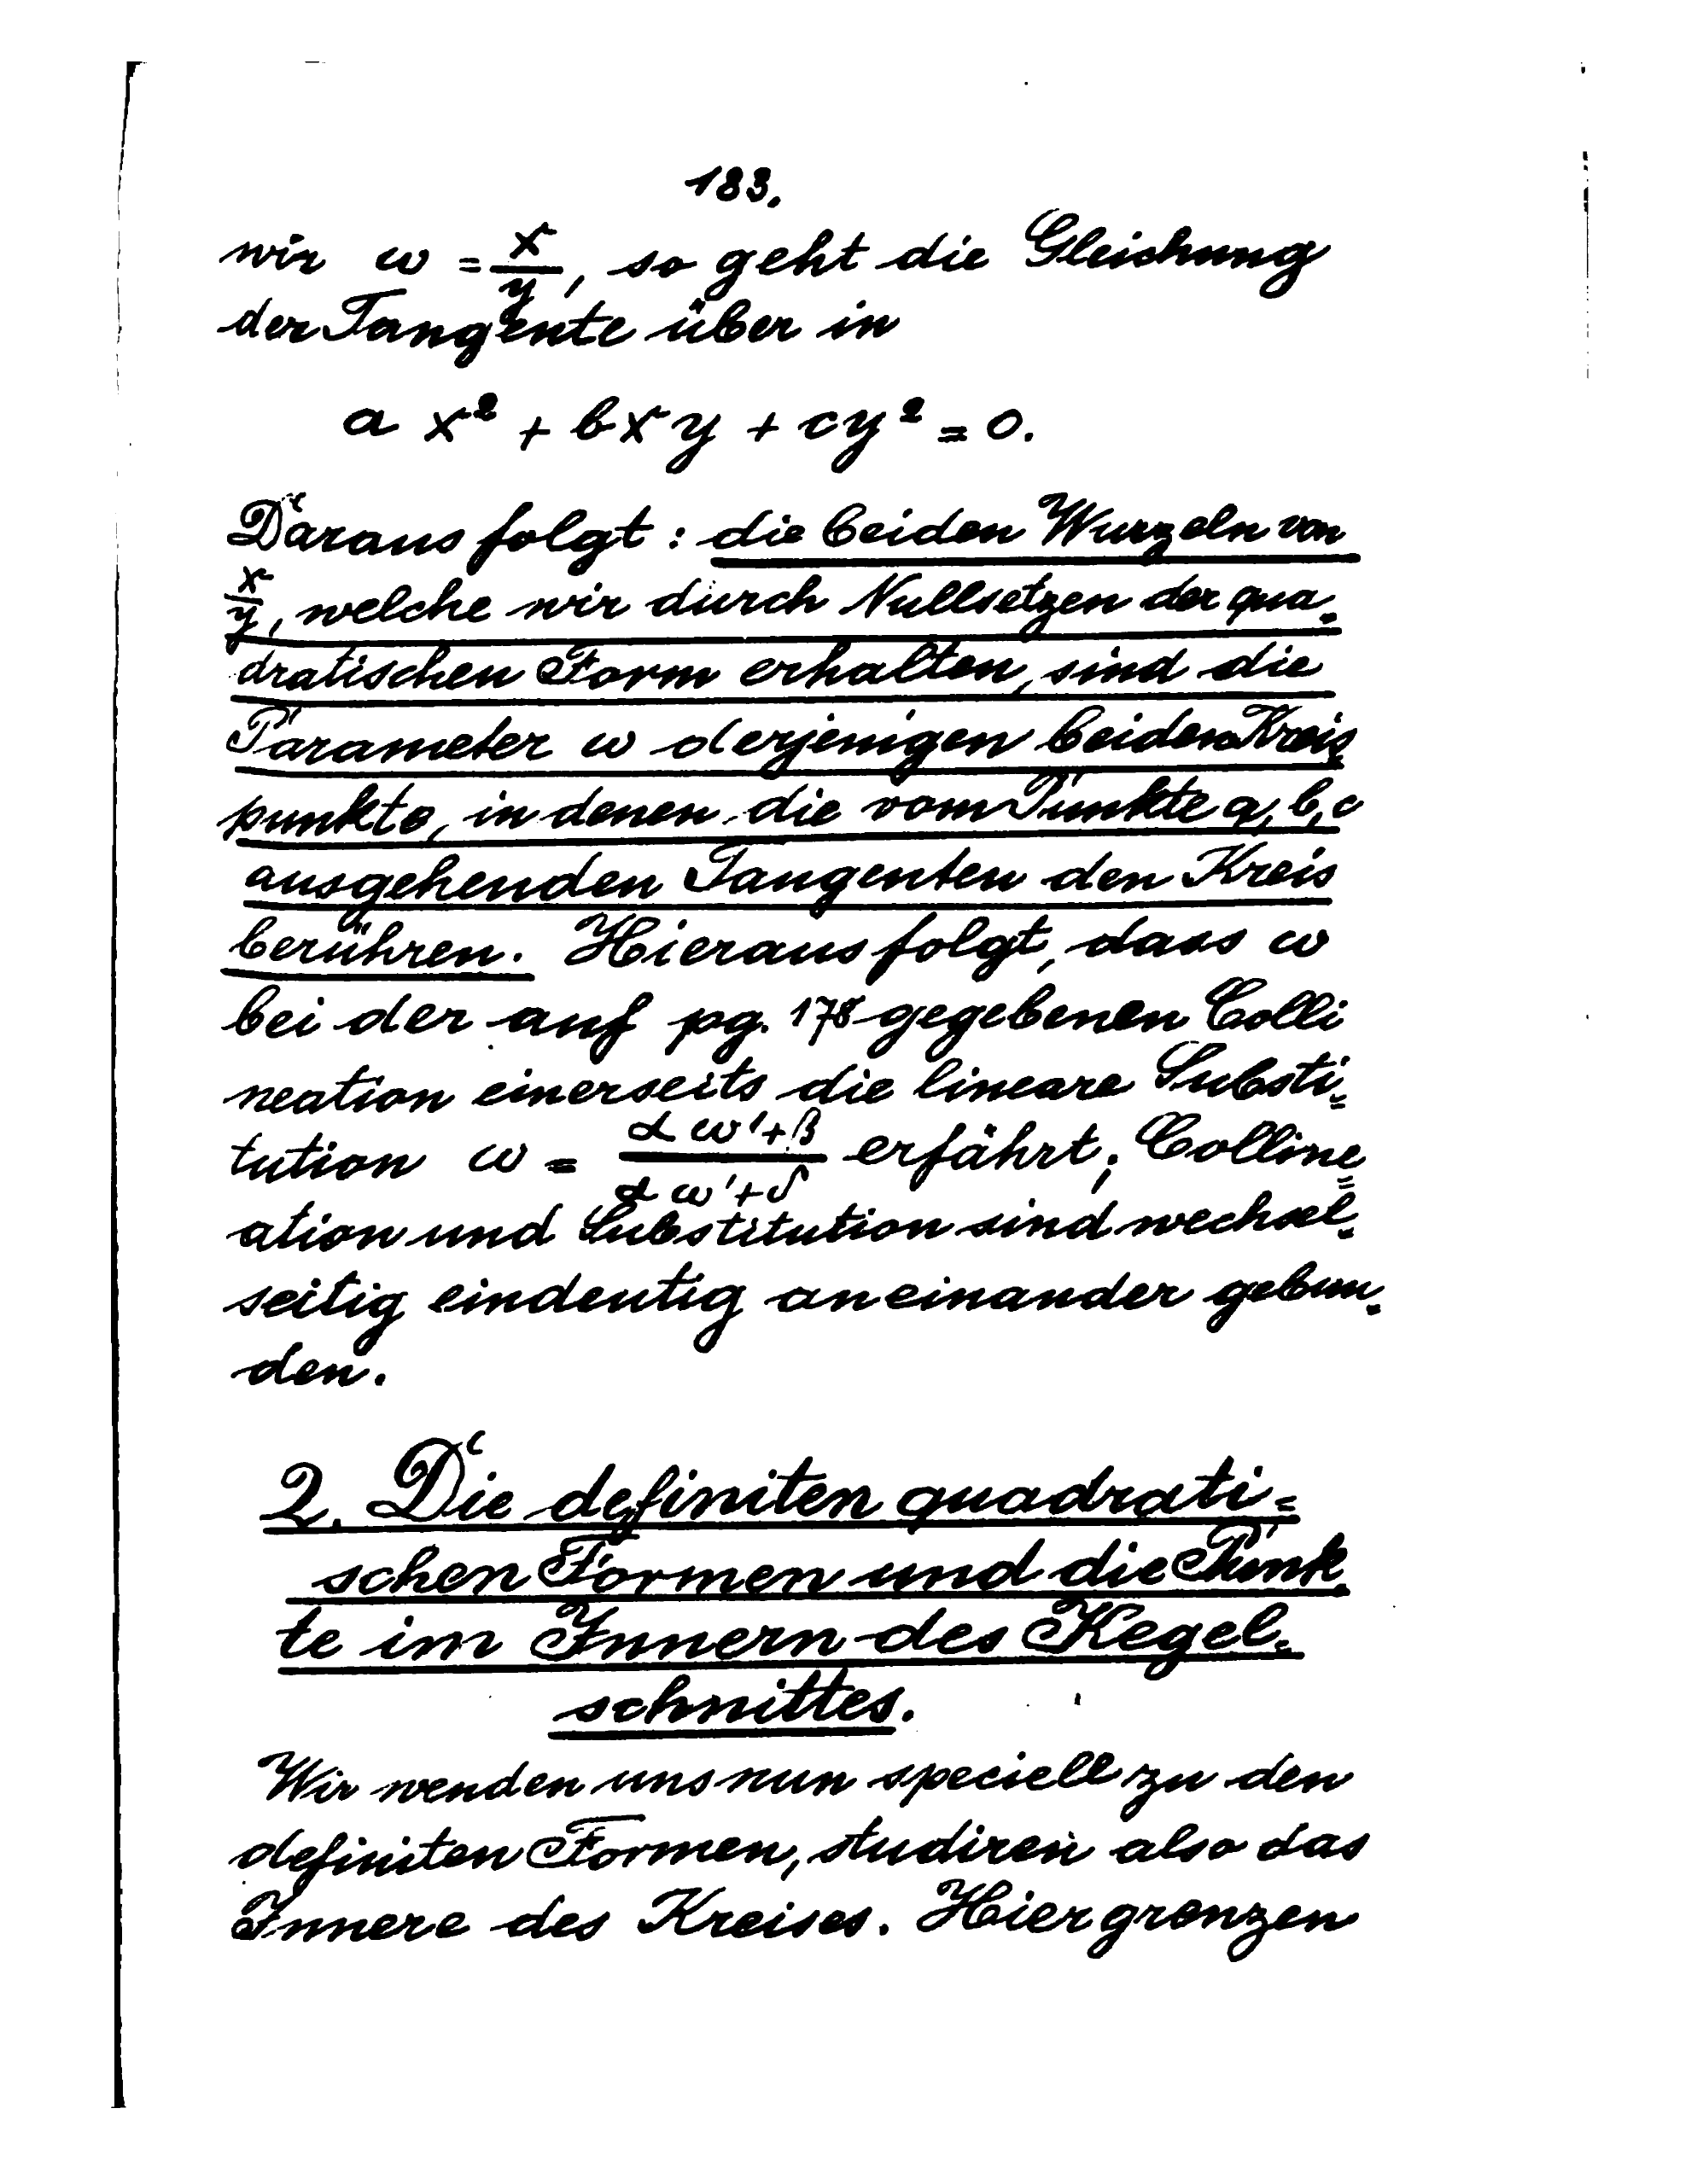 183.
wir ω = x/y, so geht die Gleichung
der Tangente über in
a x² + bxy + cy² = 0.
Daraus folgt: die beiden Wurzeln von
x/y, welche wir durch Nullsetzen der qua-
dratischen Form erhalten, sind die
Parameter ω derjenigen beiden Kreis-
punkte, in denen die vom Punkte a, b, c
ausgehenden Tangenten den Kreis
berühren. Hieraus folgt, dass ω
bei der auf pg. 178 gegebenen Colli
neation einerseits die lineare Substi=
tution ω = (α ω' + β)/(α ω' + δ) erfährt; Colline=
ation und Substitution sind wechsel=
seitig eindeutig aneinander gebun=
den.
2. Die definiten quadrati=
schen Formen und die Punk
te im Innern des Kegel=
schnittes.
Wir wenden uns nun speciell zu den
definiten Formen, studiren also das
Innere des Kreises. Hier grenzen